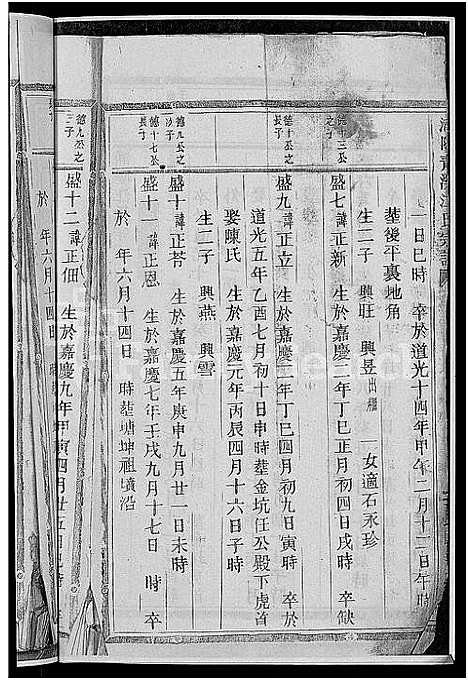 一日巳時 卒於道光十四年甲午二月十二日午時
葬後平裏地角
生二子 興旺 興昱出繼 一女適石永珍
德十三公之子
盛七 諱正新 生於嘉慶二年丁巳正月初四日戌時 卒缺
德十公之長子
盛九 諱正立 生於嘉慶二年丁巳四月初九日寅時 卒於
道光五年乙酉七月初十日申時葬金坑任公殿下虎首
娶陳氏 生於嘉慶元年丙辰四月十六日子時
生二子 興燕 興雪
德九公之次子
盛十 諱正苓 生於嘉慶五年庚申九月廿一日未時
德十七公長子
盛十一 諱正恩 生於嘉慶七年壬戌九月十七日 時 卒
於 年六月十四日 時葬塘坤祖墳沿
德九公之三子
盛十二 諱正佃 生於嘉慶九年甲寅四月廿五日 時
於 年六月十四日